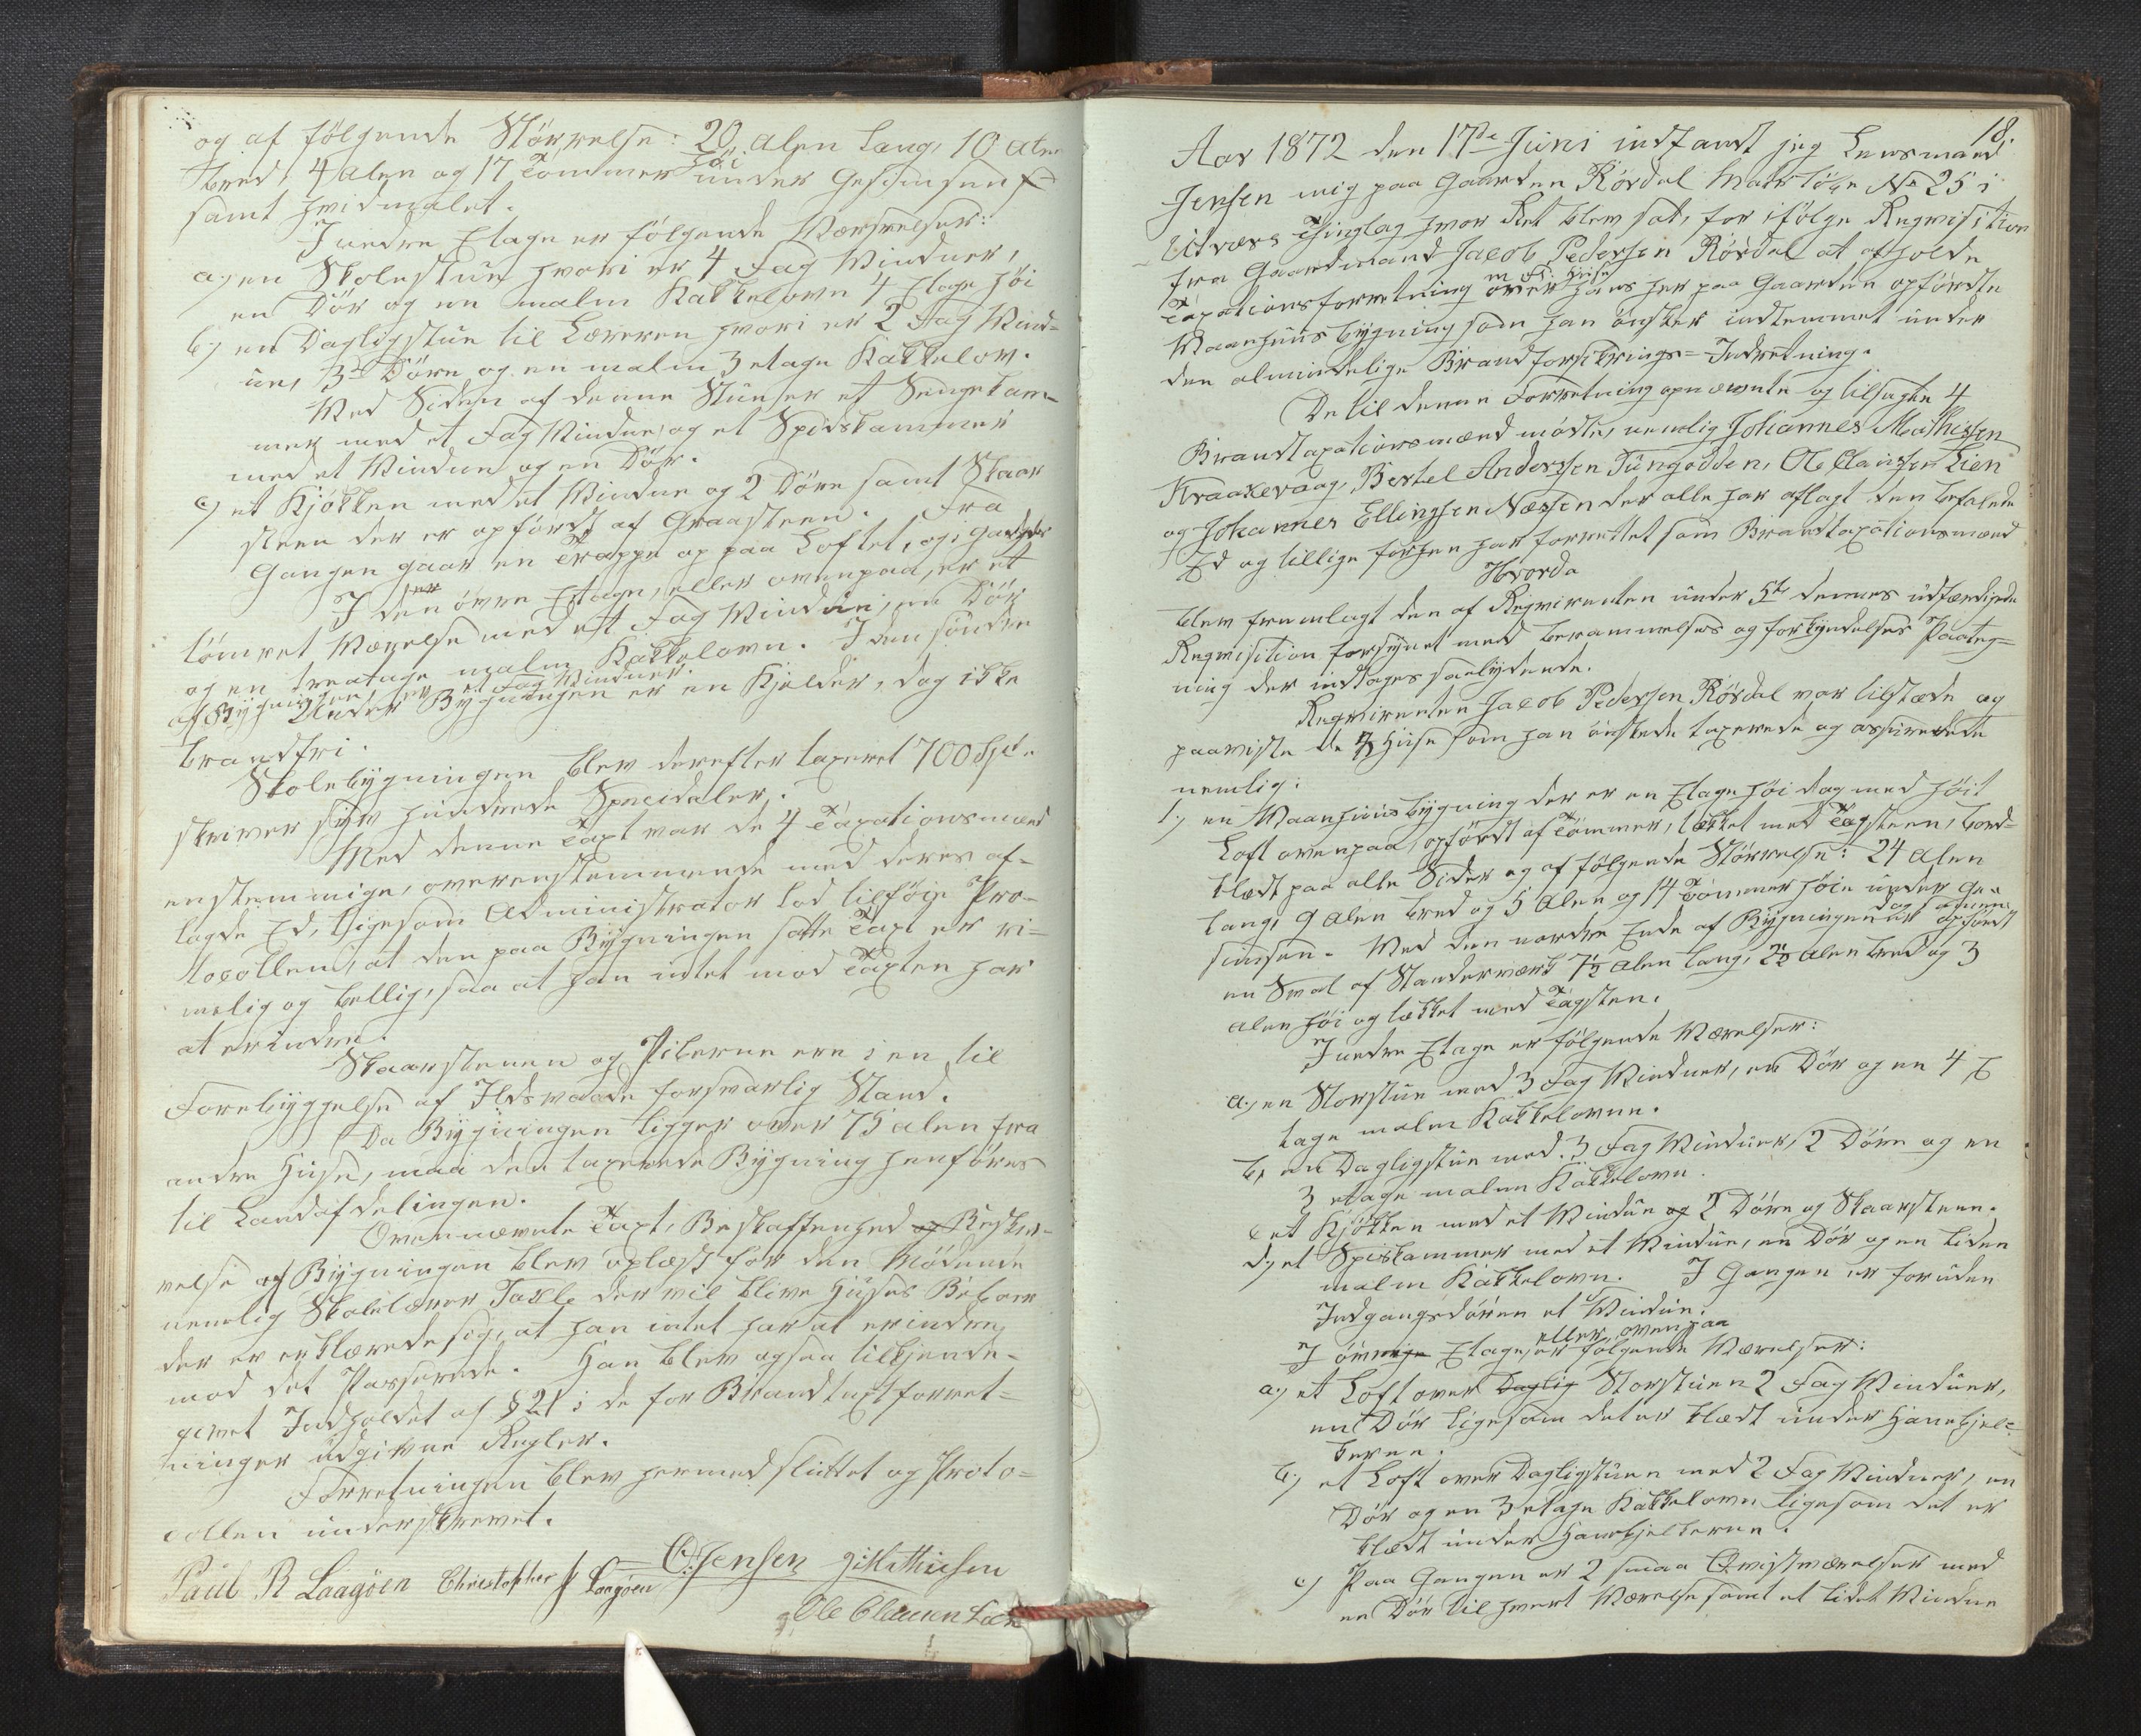 og af følgende Størrelse: 20 Alen lang, 10 Alen
bred, 4 Alen og 17 Tommer høi under Gesimsen
samt hvidmalet.
I nedre Etage er følgende Værrelser:
a.) en Skolestue hvori er 4 Fag Vinduer,
en Dør og en malm Kakkelovn 4 Etage høi
b.) en Dagligstue til Læreren hvori er 2 Fag Vind-
uer, 3 Døre og en malm 3 etage Kakkelov.
Ved Siden af denne Stue er et Sengekam-
mer med et Fag Vindue, og et Spidskammer
med et Vindue og en Dør.
c.) et Kjøkken med et Vindue og 2 Døre samt Skaar
steen der er opført af Graasteen. Fra
Gangen gaar en Trappe op paa Loftet, og i
I den øvre Etage, eller ovenpaa, er et
tømret Værelse med et Fag Vindue, en Dør
og en treetage malm Kakkelovn. I den søndre
af Bygningen er et Fag Vinduer.
Under Bygningen er en Kjelder, dog ikke
brandfri.
Skolebygningen blev derefter taxeret 700 Spd.
skriver syv hundrede Speciedaler.
Med denne Taxt var de 4 Taxationsmænd
enstemmige, overenstemmende med deres af-
lagde Ed, ligesom Administrator lod tilføie Pro-
tocollen, at den paa Bygningen satte Taxt er ri-
melig og billig, saa at han intet mod Taxten har
at erindre.
Skaarstenen og Piberne ere i en til
Forebyggelse af Ildsvaade forsvarlig Stand.
Da Bygningen ligger over 75 Alen fra
andre Huse, maa den taxerede Bygning henføres
til Landafdelingen.
Ovennævnte Taxt, Beskaffenhed og Beskri-
velse af Bygningen blev oplæst for den Mødende
nemlig Skolelærer der vil blive Husets Beboer
der er erklærede sig, at han intet har at erindre
mod det Passerede. Han blev ogsaa tilkjende-
givet Indholdet af § 21 i de for Brandtaxtforret-
ninger udgivne Regler.
Forretningen blev hermed sluttet og Proto-
collen underskrevet.
O. Jensen J Mathiesen
Paul R Laagøen Christopher J Laagøen
Ole Clausen Lien
18.
Aar 1872 den 17de Juni indfandt jeg Lensmand
Jensen mig paa Gaarden Rørdal Matr løbe No 25 i
Utværs Thinglag hvor Ret blev sat, for ifølge Reqvisition
fra Gaardmand Jacob Pedersen Rørdal at afholde
Taxationsforretning over hans her paa Gaarden opførdte
Vaanhuusbygning som han ønsker indlemmet under
den almindelige Brandforsikrings-Indretning.
De til denne Forretning opnævnte og tilsagte 4
Brandtaxationsmænd mødte, nemlig Johannes Mathisen
Kraakevaag, Bertel Anderssen Tungodden, Ole Clausen Lien
og Johannes Ellingsen Næssen der alle har aflagt den befalede
Ed og tillige forhen har forrettet som Brandtaxationsmænd
Hvorda
blev fremlagt den af Reqvirenten under 5te dennes udfærdigede
Reqvisition forsynet med Berammelses og Forkyndelses Paateg-
ning der indtages saalydende.
Reqvirenten Jacob Pedersen Rørdal var tilstæde og
paaviste de Huse som han ønskede taxerede og assurerede
nemlig:
1.) en Vaanhuusbygning der er en Etage høi dog med høit
Loft ovenpaa, opførdt af Tømmer, tækket med Tagsteen, bord-
klædt paa alle Sider og af følgende Størrelse: 24 Alen
lang, 9 Alen bred og 5 Alen og 14 Tommer høie under Ge-
simsen. Ved den nordre Ende af Bygningen er opført
en Sval af Standerværk 7½ Alen lang, 2½ Alen bred og 3
Alen høi og tækket med Tagsten.
I nedre Etage er følgende Værelser:
a.) en Storstue med 3 Fag Vinduer, en Dør og en 4 E
tage malm Kakkelovnn.
b.) en Dagligstue med 3 Fag Vinduer, 2 Døre og en
3 etage malm Kakkelovn.
c et Kjøkken med et Vindue og 2 Døre og Skaarsteen.
d.) et Spiskammer med et Vindue, en Dør og en liden
malm Kakkelovn. I Gangen er foruden
Indgangsdøren et Vindue.
eller ovenpaa
I øvre Etage er følgende Værelser:
a.) et Loft over Daglig Storstuen 2 Fag Vinduer,
en Dør ligesom det er klædt under Hanebjel-
kerne.
b.) et Loft over Dagligstuen med 2 Fag Vinduer, en
Dør og en 3 etage Kakkelovn ligesom det er
klædt under Hanebjelkerne.
c.) Paa Gangen er 2 smaa Qvistværelser med
en Dør til hvert Værelse samt et lidet Vindue